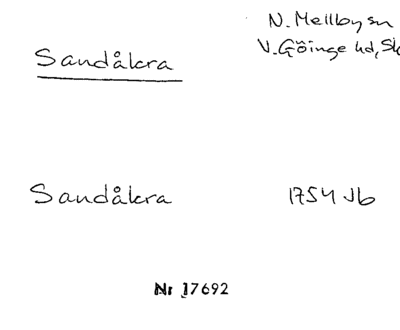 N. Mellby sn
Sandåkra
V. Göinge hd, Sk
Sandåkra
1754 Jb
Nr 17692